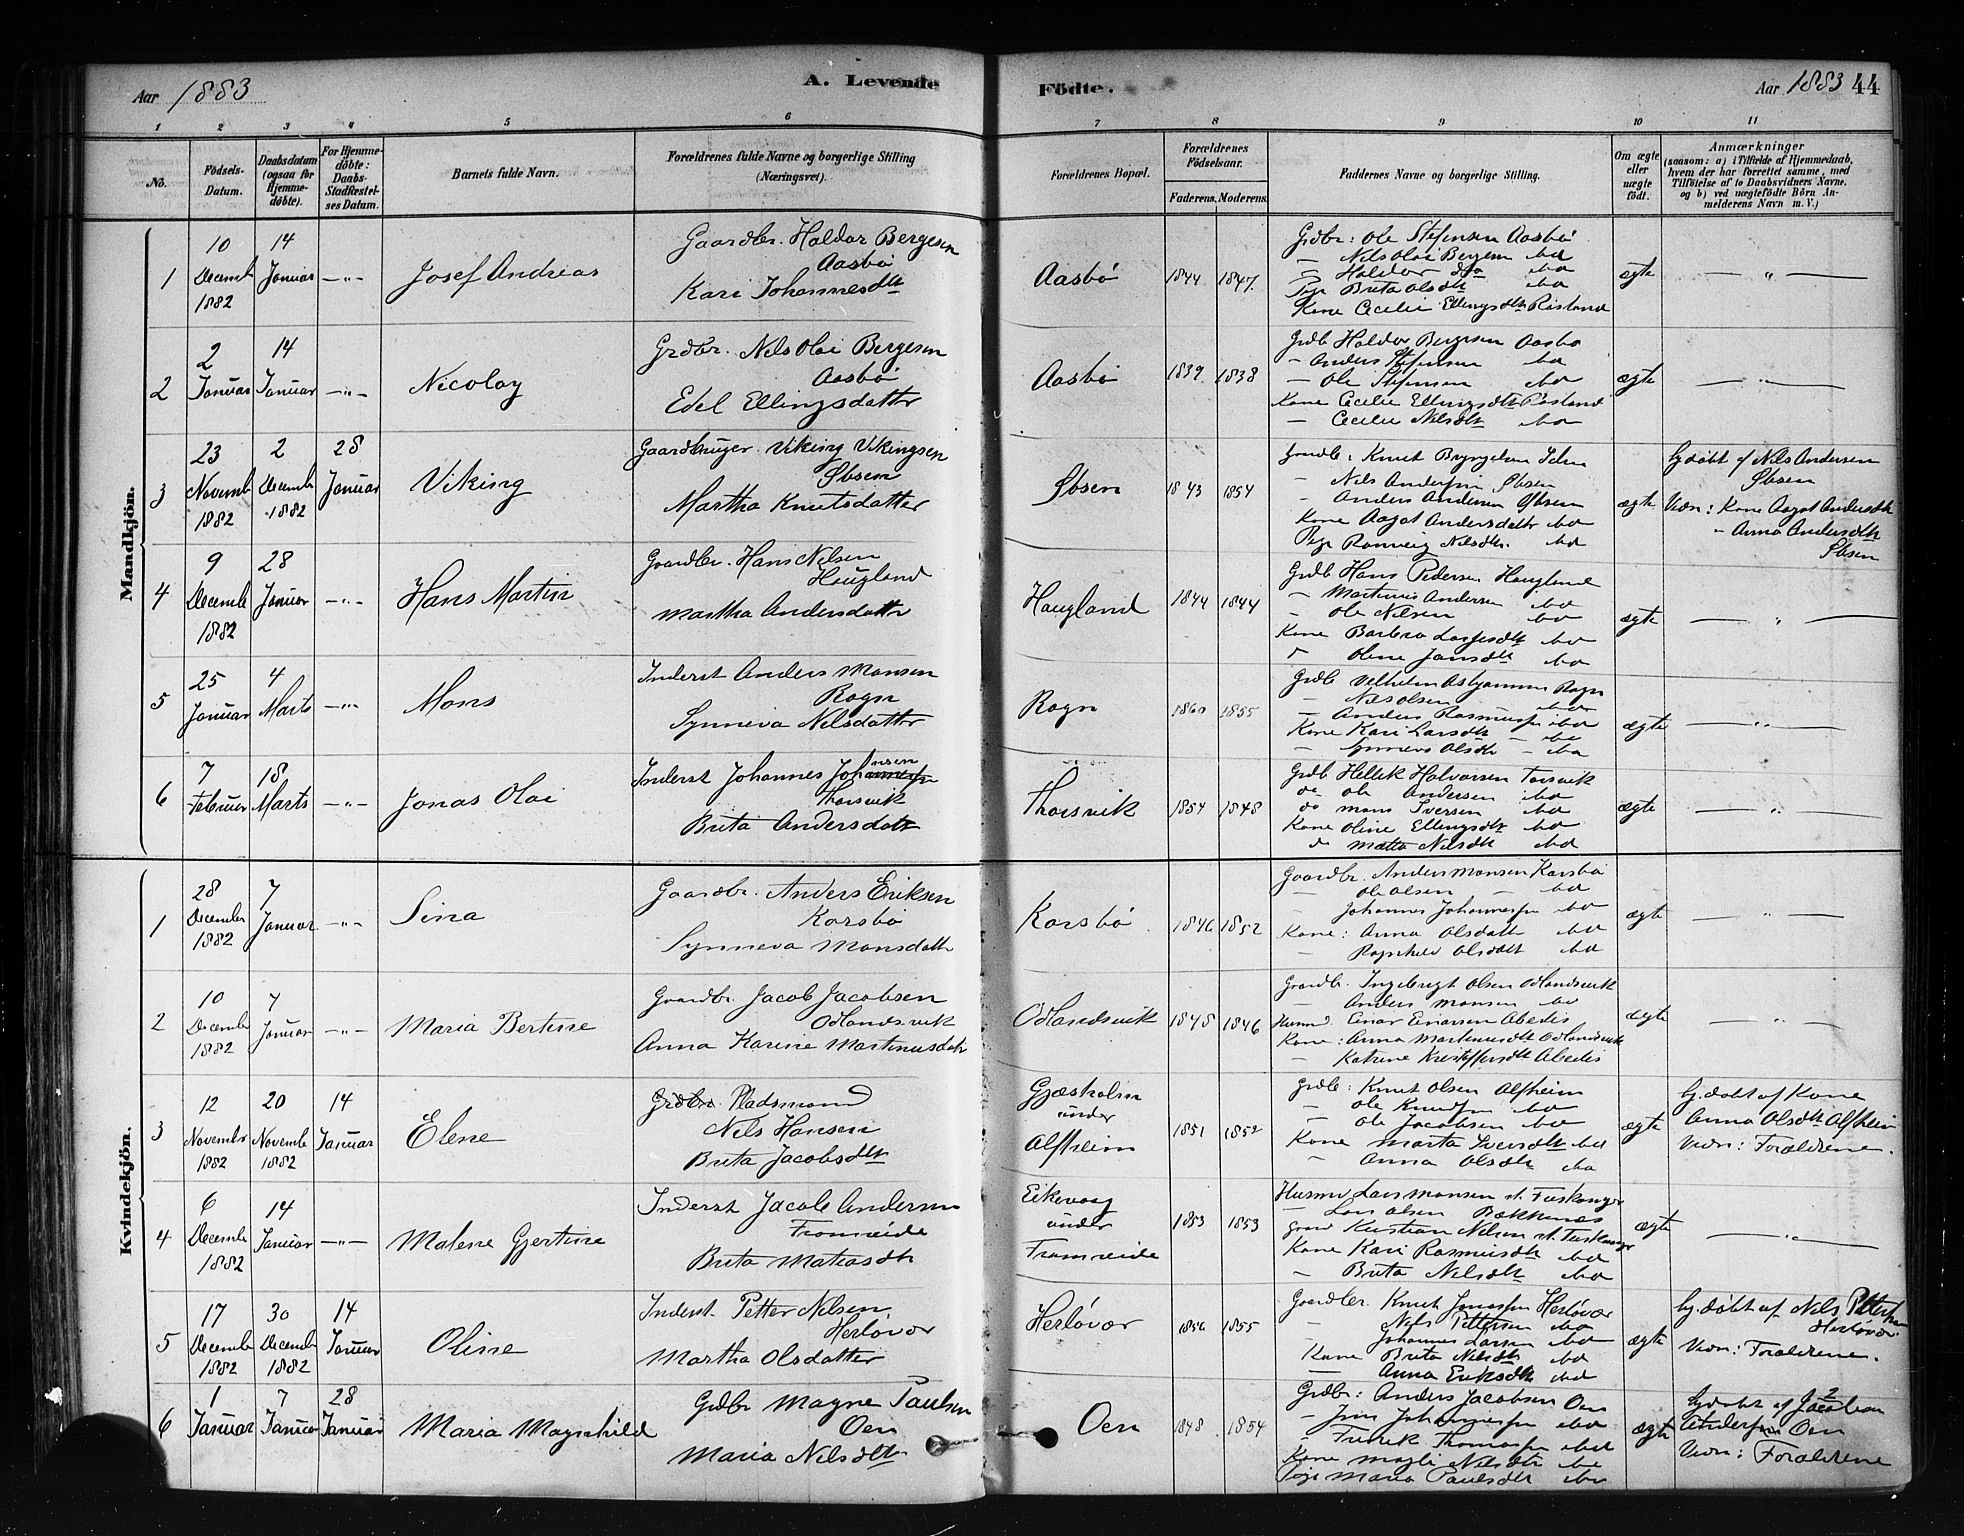 Aar 1883
A. Levende
Födte.
Aar 1883 44
1 2 3 4 5 6 7 8 9 10 11
No.
Födsels-Datum.
Daabsdatum (ogsaa for Hjemmedöbte).
For Hjemmedöbte: Daabs-Stadfæstelses Datum.
Barnets fulde Navn.
Forældrenes fulde Navne og borgerlige Stilling (Næringsvei).
Forældrenes Bopæl.
Forældrenes Födselsaar.
Faderens. Moderens.
Faddernes Navne og borgerlige Stilling.
Om ægte eller uægte födt.
Anmærkninger
(saasom: a) i Tilfælde af Hjemmedaab, hvem der har forrettet samme, med Tilföielse af to Daabsvidners Navne, og b) ved uægtefödte Börn Anmelderens Navn m. V.)
Mandkjön.
1
10 Decemb 1882
14 Januar
-"-
Josef Andreas
Gaardbr. Haldor Bergesen
Aasbö
Kari Johannesdtt
Aasbö
1844 1847.
Grdbr: Ole Stefensen Aasbö
— Nils Olai Bergesen ibd
— Haldor do ibd
Pige Brita Olsdtt ibd
Kone Cecilie Ellingsdtt Röisland
ægte
— " —
2
2 Januar
14 Januar
-"-
Nicolay
Grdbr. Nils Olai Bergesen
Aasbö
Edel Ellingsdatter
Aasbö
1839 1838
Grdb Haldor Bergesen Aasbö
— Anders Stefensen ibd
— Ole Stefensen ibd
Kone Cecilie Ellingsdtt Röisland
— Cecilie Nilsdtt ibd
ægte
— " —
3
23 Novemb 1882
2 Decemb 1882
28 Januar
Viking
Gaardbruger Viking Vikingsen
Öbsen
Martha Knutsdatter
Öbsen
1843 1854
— Nils Andersen Öbsen
— Anders Andersen Öbsen
Kone Aagot Andersdatter ibd
Pige Ranveig Nilsdtr. ibd
ægte
hj.döbt af Nils Andersen
Öbsen
Vidn: Kone Aagot Andersdtt
— Anna Andersdtt
Öbsen
4
9 Decemb 1882
28 Januar
-"-
Hans Martin
Gaardbr. Hans Nilsen
Haugland
Martha Andersdatter
Haugland
1844 1844
Grdb Hans Pedersen Haugland
— Martinus Andersen ibd
— Ole Nilsen ibd
Kone Barbra Larsesdtt ibd
Oline Jansdtt ibd
ægte
— " —
5
25 Januar
4 Marts
-"-
Mons
Inderst Anders Monsen
Rogn
Synneva Nilsdatter
Rogn
1860 1855
Grdb Velhelm Asbjörnsen Rogn
— Nils Olsen ibd
— Anders Rasmussen ibd
Kone Kari Larsdtt ibd
— Synneva Olsdtr — ibd
ægte
— " —
6
7 Februar
18 Marts
-"-
Jonas Olai
Inderst Johannes Johansen
Thorsvik
Brita Andersdatt
Thorsvik
1854 1848
Grdb Hellik Halvorsen Torsvik
do Ole Andersen ibd
do Mons Iversen ibd
Kone Oline Ellingsdtt ibd
d Matta Nilsdtt ibd
ægte
— " —
Kvindekjön.
1
28 December 1882
7 Januar
-"-
Sina
Gaardbr. Anders Eriksen
Korsbö
Synneva Monsdatt
Korsbö
1846 1852
Gaardbr. Anders Monsen Korsbö
— Ole Olsen — ibd
— Johannes Johannessen ibd
Kone: Anna Olsdatt ibd
Ragnhild Olsdatt ibd
ægte
— " —
2
10 Decembr 1882
7 Januar
-"-
Maria Bertine
Gaardbr. Jacob Jacobsen
Odlandsvik
Anna Karine Martinusdatr
Odlandsvik
1848 1846
Gaardbr. Ingebrigt Olsen Odlandsvik
— Anders Monsen ibd
Husmd. Einar Einarsen Abedis
Kone: Anna Martinusdtt Odlandsvik
— Katrine Kristoffersdtt Abedis
ægte
— " —
3
12 Novembr 1882
20 Novemb 1882
14 Januar
Elene
Grdbr. Pladsmand
Nils Hansen
Brita Jacobsdtt
Gjæsholm
under
Alfheim
1851 1852
Grdb: Knut Olsen Alfheim
— Ole Knudsen ibd
— Ole Jacobsen ibd
Kone Marta Iversdtt ibd
— Anna Olsdtt ibd
ægte
hj.döbt af Kone
Anna Olsdtt Alfheim
Vidn: Forældrene.
4
6 Decemb 1882
14 Januar
-"-
Malene Gjertine
Inderst Jacob Andersen
Framreide
Brita Matiasdtr
Eikevaag
under
Framreide
1853 1853
Husmd Lars Monsen st. Fuskanger
— Lars Olsen Bækkenæs
Grdb Kristian Nilsen st. Fuskanger
Kone Kari Rasmusdtt ibd
— Brita Nilsdtt ibd
ægte
— " —
5
17 Decembr 1882
30 Decemb 1882
14 Januar
Oline
Inderst. Petter Nilsen
Herlövær
Martha Olsdatter
Herlövær
1856 1855
Gaardbr. Knut Jonassen Herlövær
— Nils Pettersen ibd
— Johannes Larsen ibd
Kone Brita Nilsdtt ibd
— Anna Eriksdtt ibd
ægte
hj.döbt af Nils Pettersen
Herlövær.
Vidn: Forældrene.
6
1 Januar
7 Januar
28 Januar
Maria Magnhild
Grdbr Magne Paulsen
Oen
Maria Nilsdtt
Oen
1848 1854
Grdbr: Anders Jacobsen Oen
— Jens Johannessen ibd
— Fredrik Thomassen ibd
Kone Magli Nilsdtt ibd
Pige Maria Paulsdtt ibd
ægte
hj.döbt af Jacob
Andersen Oen
Vidn: Forældrene